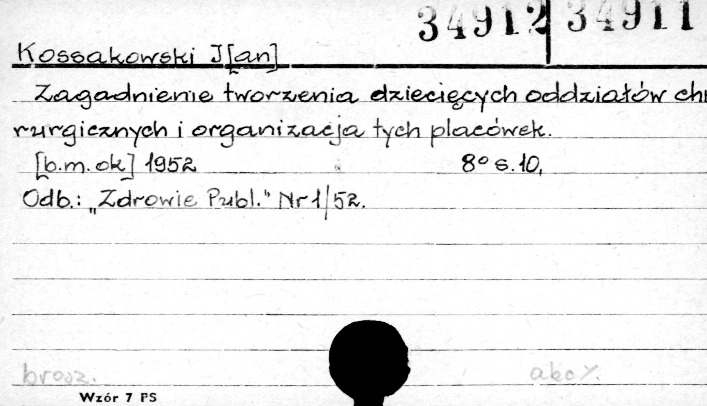 34912 34911
Kossakowski J[an]
Zagadnienie tworzenia dziecięcych oddziałów chi
rurgicznych i organizacja tych placówek.
[b.m.ok] 1952 8° s.10,
Odb.: „Zdrowie Publ." Nr 1/52.
brosz.
Wzór 7 PS